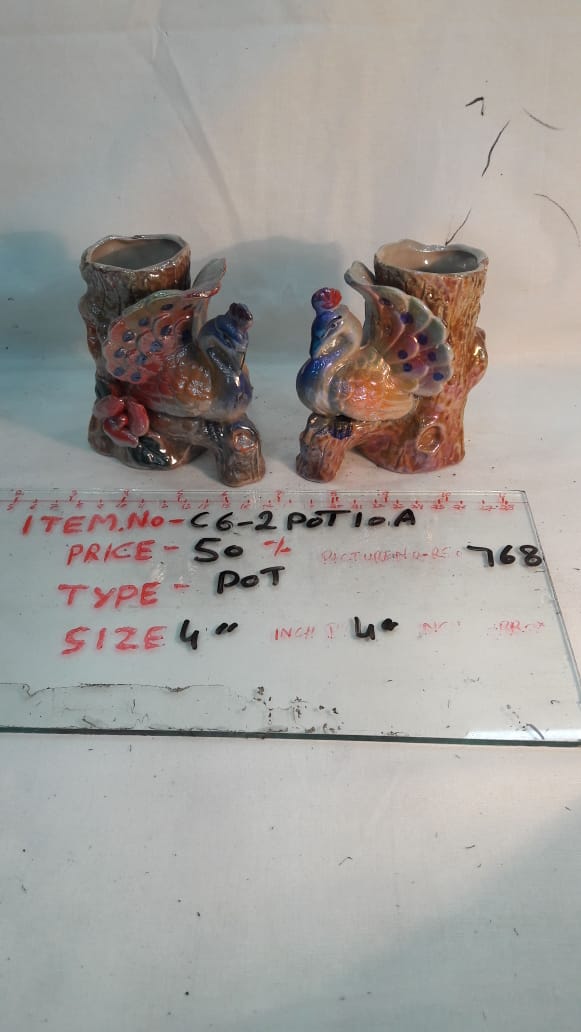 ITEM.No-C6-2 POT 10.A
PRICE - 50 % 768
TYPE - POT
SIZE 4" INCH 4"